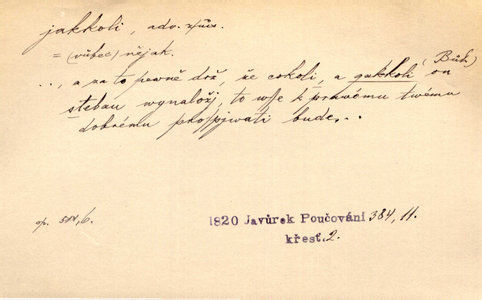 jakkoli, adv. způs.
= (vůbec) nějak.
..., a za to pewně drž, že cokoli, a gakkoli on (Bůh)
s tebau wynaložj, to wsse k prawému twému
dobrému prospjwati bude...
op. 584, 6. 1820 Javůrek Poučování 384, 11.
křest. 2.